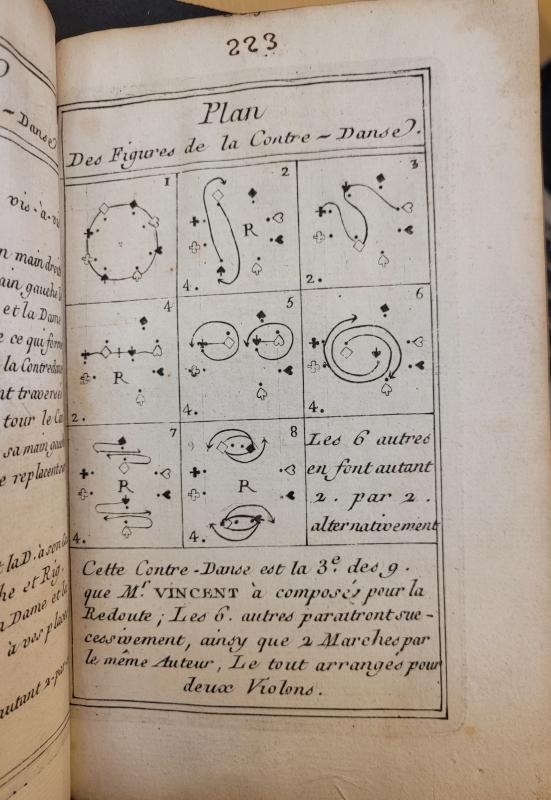 223
Plan
Des Figures de la Contre-Danse.
1
2
3
R
4.
2.
4
5
6
R
2.
4.
4.
7
8
R
R
4.
4.
Les 6 autres
en font autant
2. par 2.
alternativement
Cette Contre-Danse est la 3.e des 9.
que M.r VINCENT à composés pour la
Redoute; Les 6. autres paraitront suc-
cessivement, ainsy que 2 Marches par
le même Auteur, Le tout arrangés pour
deux Violons.
- Danse
vis-à-vis
main droite
main gauche
et la Dame
ce qui forme
la Contredanse
traversent
tour le
sa main gauche
replacent
et la D. à son
et Rig.
Dame et la
à vos places
autant 2 par